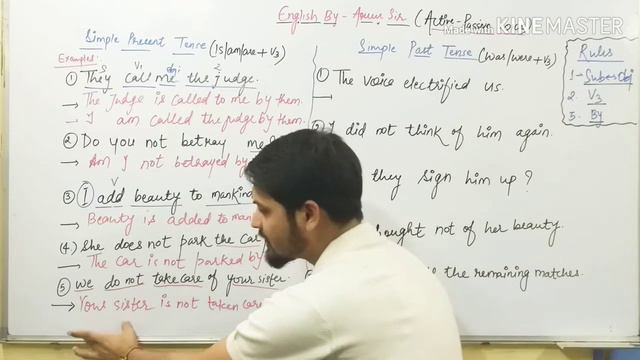 English By - Sir (Active-Passive
Made with KINEMASTER
Simple Present Tence (is/am/are + V3)
Examples:
S V1 obj 2
① They call me the judge.
→ The Judge is called to me by them.
→ I am called the judge by them.
② Do you not betray me
→ Am I not betrayed by
V
③ I add beauty to mankind
→ Beauty is added to man
(4) She does not park the car
→ The car is not parked by
⑤ we do not take care of your sister.
→ Your sister is not taken care
Simple Past Tense (was/were + V3)
① The voice electrified us.
→
I did not think of him again.
they sign him up?
thought not of her beauty.
the remaining matches.
Rules
1 - Subj⇔Obj
2. V3
3. By